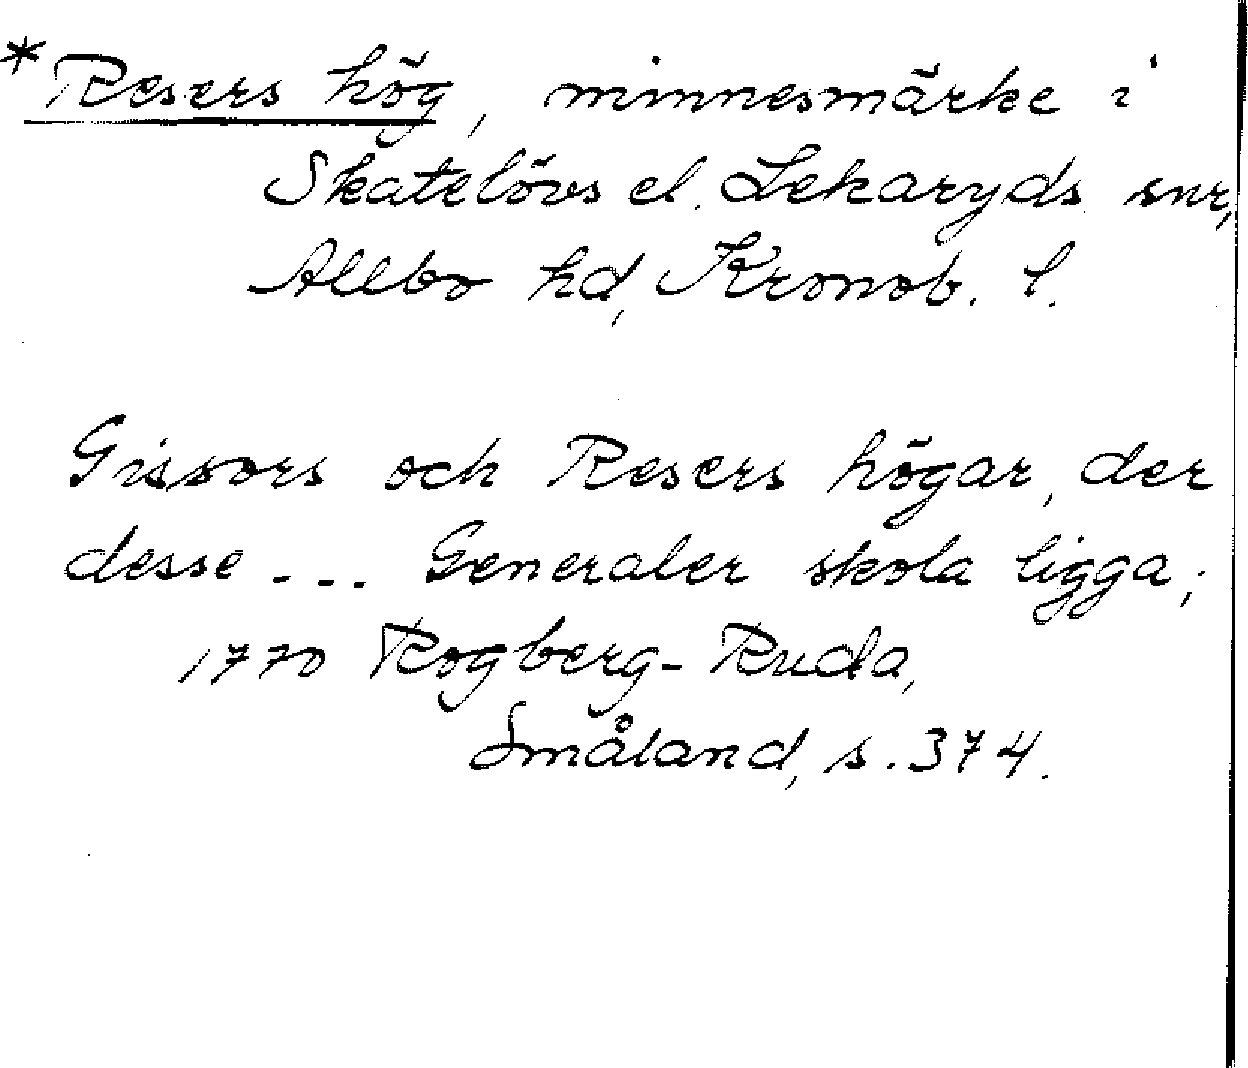 * Resers hög, minnesmärke i
Skatelövs el. Lekaryds snr,
Allbo hd, Kronob. l.
Gissors och Resers högar, der
desse --- Generaler skola ligga;
1770 Rogberg-Ruda,
Småland, s. 374.